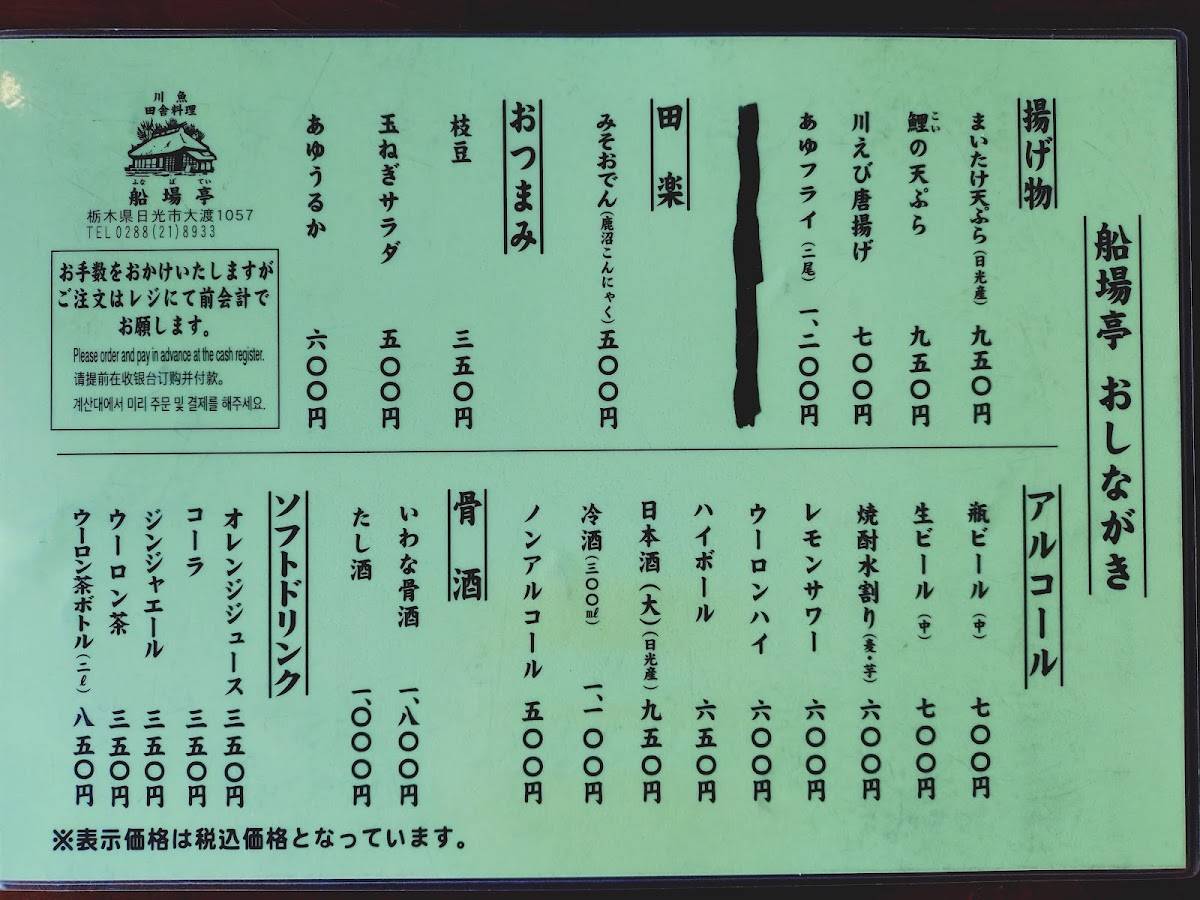 船場亭 おしながき
揚げ物
まいたけ天ぷら(日光産) 九五〇円
鯉の天ぷら 九五〇円
こい
川えび唐揚げ 七〇〇円
あゆフライ(二尾) 一、二〇〇円
田楽
みそおでん(鹿沼こんにゃく) 五〇〇円
おつまみ
枝豆 三五〇円
玉ねぎサラダ 五〇〇円
あゆうるか 六〇〇円
川魚
田舎料理
ふなばてい
船場亭
栃木県日光市大渡1057
TEL 0288(21)8933
お手数をおかけいたしますが
ご注文はレジにて前会計で
お願します。
Please order and pay in advance at the cash register.
请提前在收银台订购并付款。
계산대에서 미리 주문 및 결제를 해주세요.
アルコール
瓶ビール(中) 七〇〇円
生ビール(中) 七〇〇円
焼酎水割り(麦・芋) 六〇〇円
レモンサワー 六〇〇円
ウーロンハイ 六〇〇円
ハイボール 六五〇円
日本酒(大)(日光産) 九五〇円
冷酒(三〇〇㎖) 一、一〇〇円
ノンアルコール 五〇〇円
骨酒
いわな骨酒 一、八〇〇円
たし酒 一、〇〇〇円
ソフトドリンク
オレンジジュース 三五〇円
コーラ 三五〇円
ジンジャエール 三五〇円
ウーロン茶 三五〇円
ウーロン茶ボトル(二ℓ) 八五〇円
※表示価格は税込価格となっています。